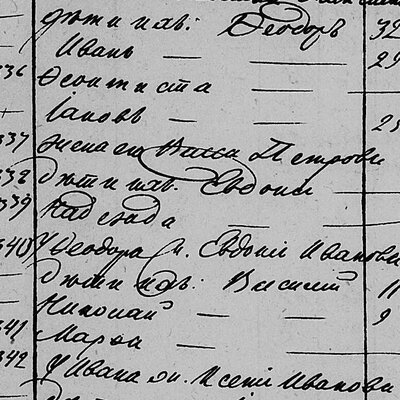 дѣти ихъ: Ѳеодоръ 32
Иванъ — — 29
336 Ѳеоктиста —
Іаковъ — 25
337 жена ег Васса Петрови
338 дѣти ихъ. Евдокі
339 Надежда
340 У Ѳеодора ж. Евдокіі Иванови
дѣти ихъ: Василій 11
Николай — — 9
341 Марѳа —
342 У Ивана ж. Ксенія Иванови